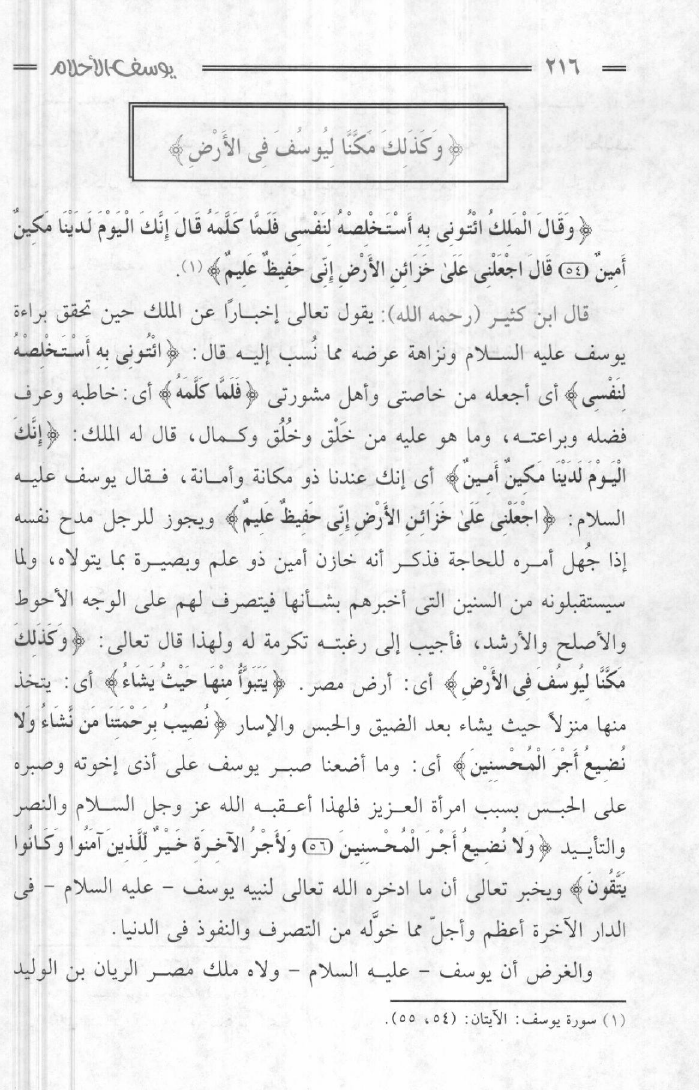 ٢١٦ يوسف الأحلام
﴿ وَكَذَلِكَ مَكَّنَّا لِيُوسُفَ فِى الأَرْضِ ﴾
﴿ وَقَالَ الْمَلِكُ ائْتُونِى بِهِ أَسْتَخْلِصْهُ لِنَفْسِى فَلَمَّا كَلَّمَهُ قَالَ إِنَّكَ الْيَوْمَ لَدَيْنَا مَكِينٌ
أَمِينٌ (٥٤) قَالَ اجْعَلْنِى عَلَىٰ خَزَائِنِ الأَرْضِ إِنِّى حَفِيظٌ عَلِيمٌ ﴾ (١).
قال ابن كثير (رحمه الله): يقول تعالى إخبارًا عن الملك حين تحقق براءة
يوسف عليه السلام ونزاهة عرضه مما نُسب إليه قال: ﴿ ائْتُونِى بِهِ أَسْتَخْلِصْهُ
لِنَفْسِى ﴾ أى أجعله من خاصتى وأهل مشورتى ﴿ فَلَمَّا كَلَّمَهُ ﴾ أى: خاطبه وعرف
فضله وبراعته، وما هو عليه من خَلْق وخُلُق وكمال، قال له الملك: ﴿ إِنَّكَ
الْيَوْمَ لَدَيْنَا مَكِينٌ أَمِينٌ ﴾ أى إنك عندنا ذو مكانة وأمانة، فقال يوسف عليه
السلام: ﴿ اجْعَلْنِى عَلَىٰ خَزَائِنِ الأَرْضِ إِنِّى حَفِيظٌ عَلِيمٌ ﴾ ويجوز للرجل مدح نفسه
إذا جُهل أمره للحاجة فذكر أنه خازن أمين ذو علم وبصيرة بما يتولاه، ولما
سيستقبلونه من السنين التى أخبرهم بشأنها فيتصرف لهم على الوجه الأحوط
والأصلح والأرشد، فأجيب إلى رغبته تكرمة له ولهذا قال تعالى: ﴿ وَكَذَلِكَ
مَكَّنَّا لِيُوسُفَ فِى الأَرْضِ ﴾ أى: أرض مصر. ﴿ يَتَبَوَّأُ مِنْهَا حَيْثُ يَشَاءُ ﴾ أى: يتخذ
منها منزلاً حيث يشاء بعد الضيق والحبس والإسار ﴿ نُصِيبُ بِرَحْمَتِنَا مَن نَّشَاءُ وَلا
نُضِيعُ أَجْرَ الْمُحْسِنِينَ ﴾ أى: وما أضعنا صبر يوسف على أذى إخوته وصبره
على الحبس بسبب امرأة العزيز فلهذا أعقبه الله عز وجل السلام والنصر
والتأييد ﴿ وَلا نُضِيعُ أَجْرَ الْمُحْسِنِينَ (٥٦) وَلأَجْرُ الآخِرَةِ خَيْرٌ لِّلَّذِينَ آمَنُوا وَكَانُوا
يَتَّقُونَ ﴾ ويخبر تعالى أن ما ادخره الله تعالى لنبيه يوسف - عليه السلام - فى
الدار الآخرة أعظم وأجلّ مما خوَّله من التصرف والنفوذ فى الدنيا.
والغرض أن يوسف - عليه السلام - ولاه ملك مصر الريان بن الوليد
(١) سورة يوسف: الآيتان: (٥٤، ٥٥).